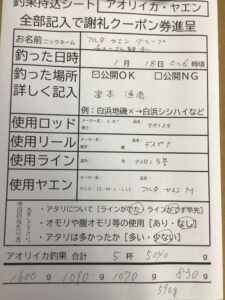 釣果持込シート アオリイカ・ヤエン
全部記入で謝礼クーポン券進呈
お名前 ニックネーム フルタ ヤエン グループ
釣った日時 1月 18日 時頃
釣った場所 ☑公開OK □公開NG
詳しく記入 串本 漁港
例：白浜地磯×→白浜シシハイなど
使用ロッド メーカー名・ 品名・
使用リール メーカー名・ 品名・
使用ライン ナイロン 3号
使用ヤエン サイズ・(S・M・L・LL) フルタ ヤエン M
今日の当たり方
・アタリについて [ラインがでた・ラインがでず竿先]
・オモリや腹オモリ等の使用 [あり・なし]
・アタリは多かったか [多い・少ない]
アオリイカ釣果 合計 5 杯 g
1600 g 1090 g 1070 g 830 g
590g